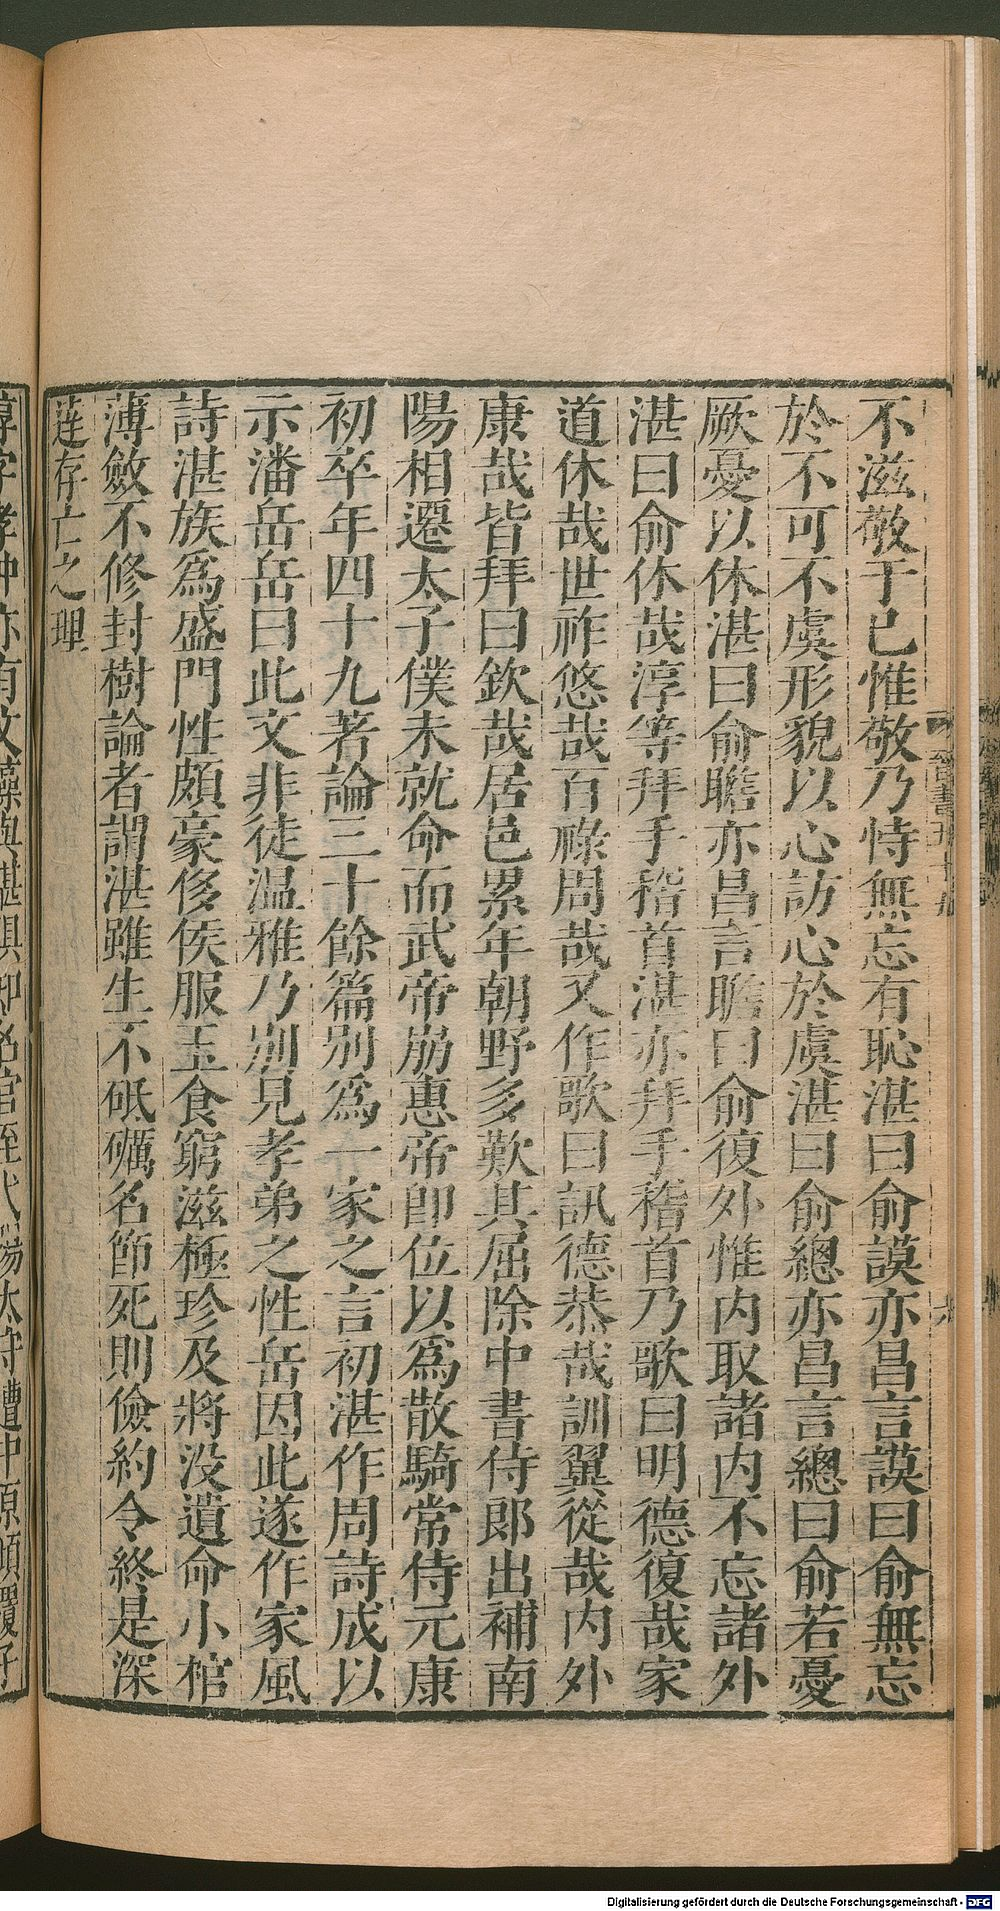 不滋敬于已惟敬乃恃無忘有恥湛曰俞謨亦昌言謨曰俞無忘
於不可不虞形貌以心訪心於虞湛曰俞總亦昌言總曰俞若憂
厥憂以休湛曰俞瞻亦昌言瞻曰俞復外惟内取諸内不忘諸外
湛曰俞休哉淳等拜手稽首湛亦拜手稽首乃歌曰明德復哉家
道休哉世祚悠哉百祿周哉又作歌曰訊德恭哉訓翼從哉内外
康哉皆拜曰欽哉居邑累年朝野多歎其屈除中書侍郎出補南
陽相遷太子僕未就命而武帝崩惠帝即位以爲散騎常侍元康
初卒年四十九著論三十餘篇别爲一家之言初湛作周詩成以
示潘岳岳曰此文非徒温雅乃别見孝弟之性岳因此遂作家風
詩湛族爲盛門性頗豪侈侯服玉食窮滋極珍及將没遺命小棺
薄斂不修封樹論者謂湛雖生不砥礪名節死則儉約令終是深
達存亡之理
淳字孝沖亦有文藻與湛俱知名官至弋陽太守遭中原傾覆子
晉書五十五
Digitalisierung gefördert durch die Deutsche Forschungsgemeinschaft - DFG